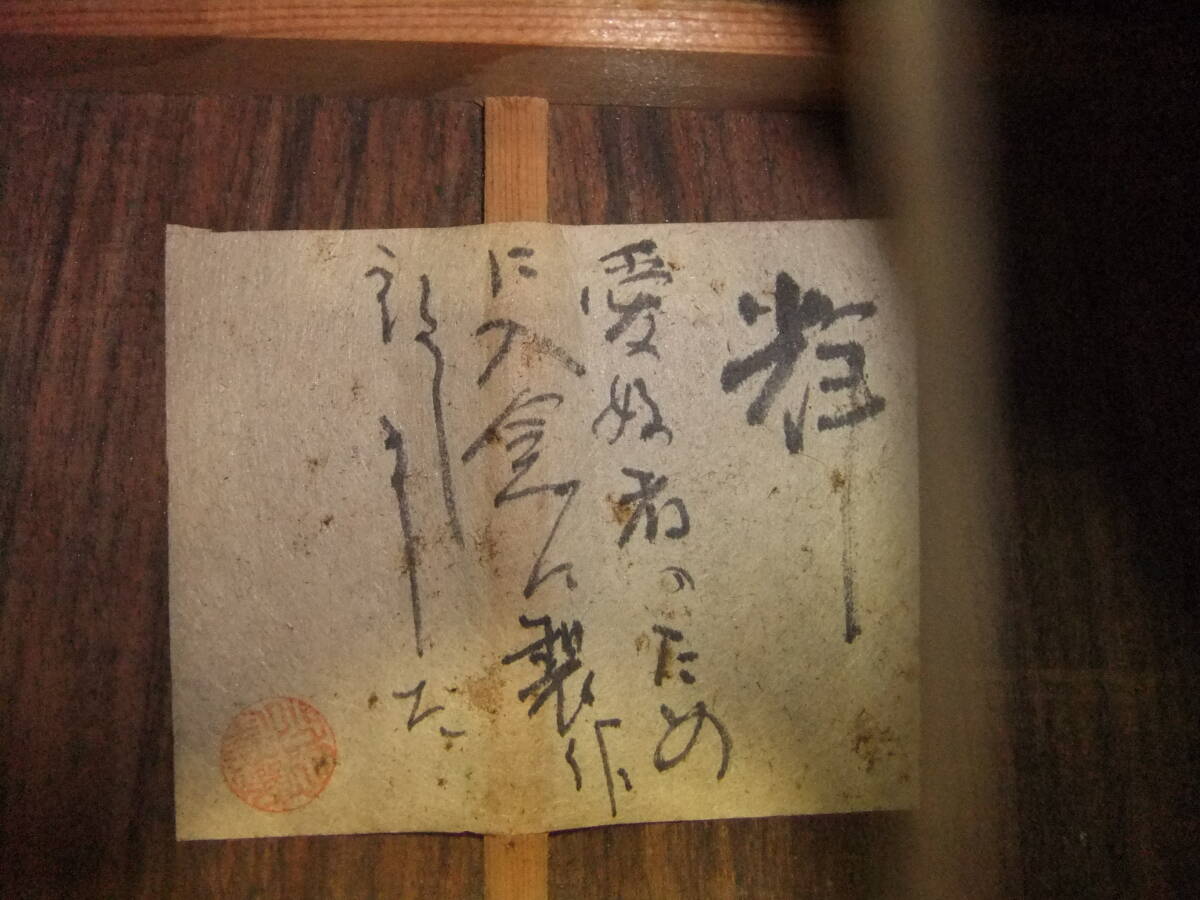 愛好者のため
に入念に製作
致しました